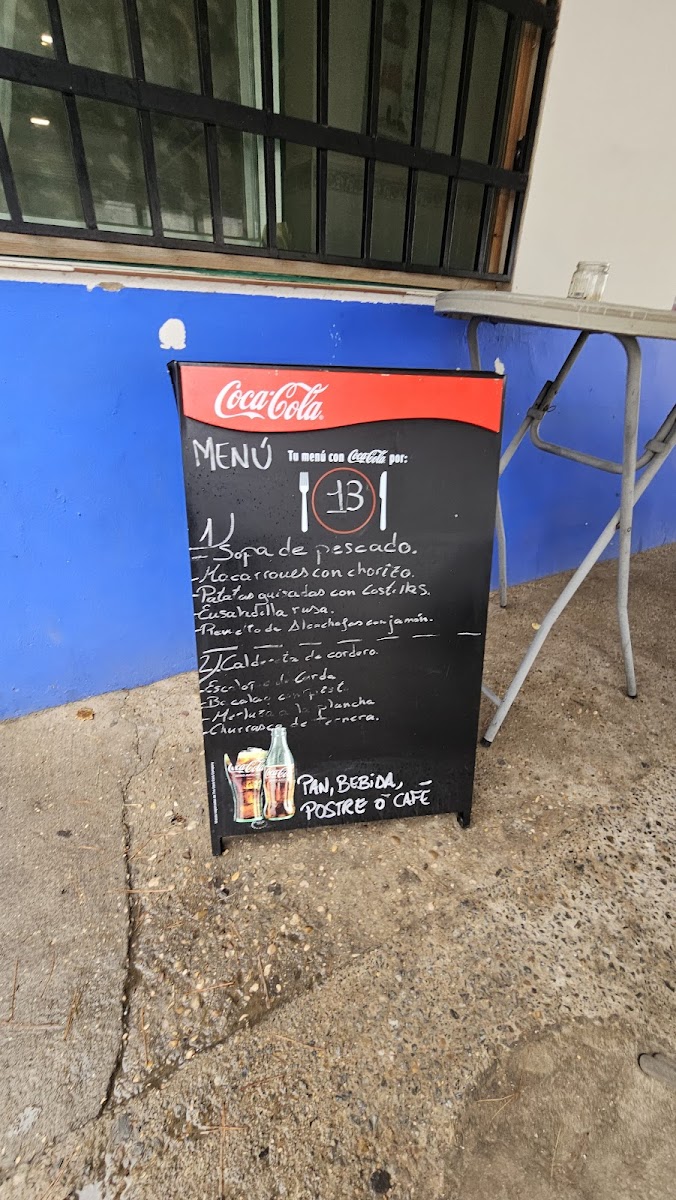 Coca-Cola
MENÚ Tu menú con Coca-Cola por:
13
1)
- Sopa de pescado.
- Macarrones con chorizo.
- Patatas guisadas con Costillas.
- Ensaladilla rusa.
- de Alcachofas con jamón.
2) Caldereta de cordero.
- de Cerdo
- Bacalao
- Merluza a la plancha
- Churrasco de Ternera.
PAN, BEBIDA,
POSTRE O CAFÉ